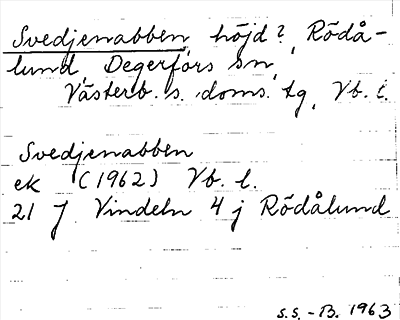 Svedjenabben, höjd? Rödå-
lund, Degerfors sn,
Västerb. s. doms. tg, Vb. l.
Svedjenabben
ek (1962) Vb. l.
21 J Vindeln 4 j Rödålund
S.S. - B. 1963